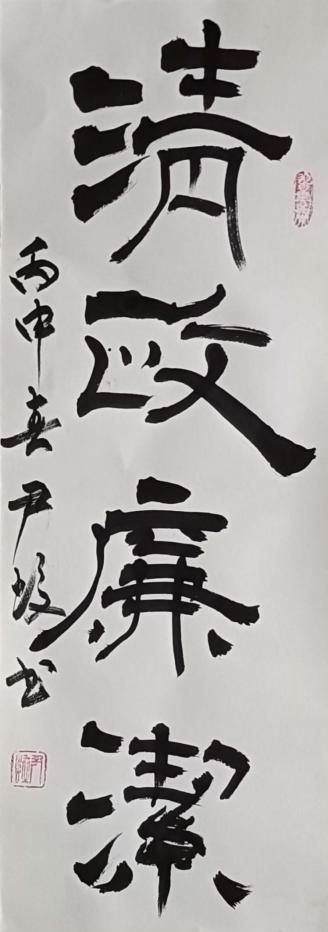 清政廉潔
丙申春尹坡书